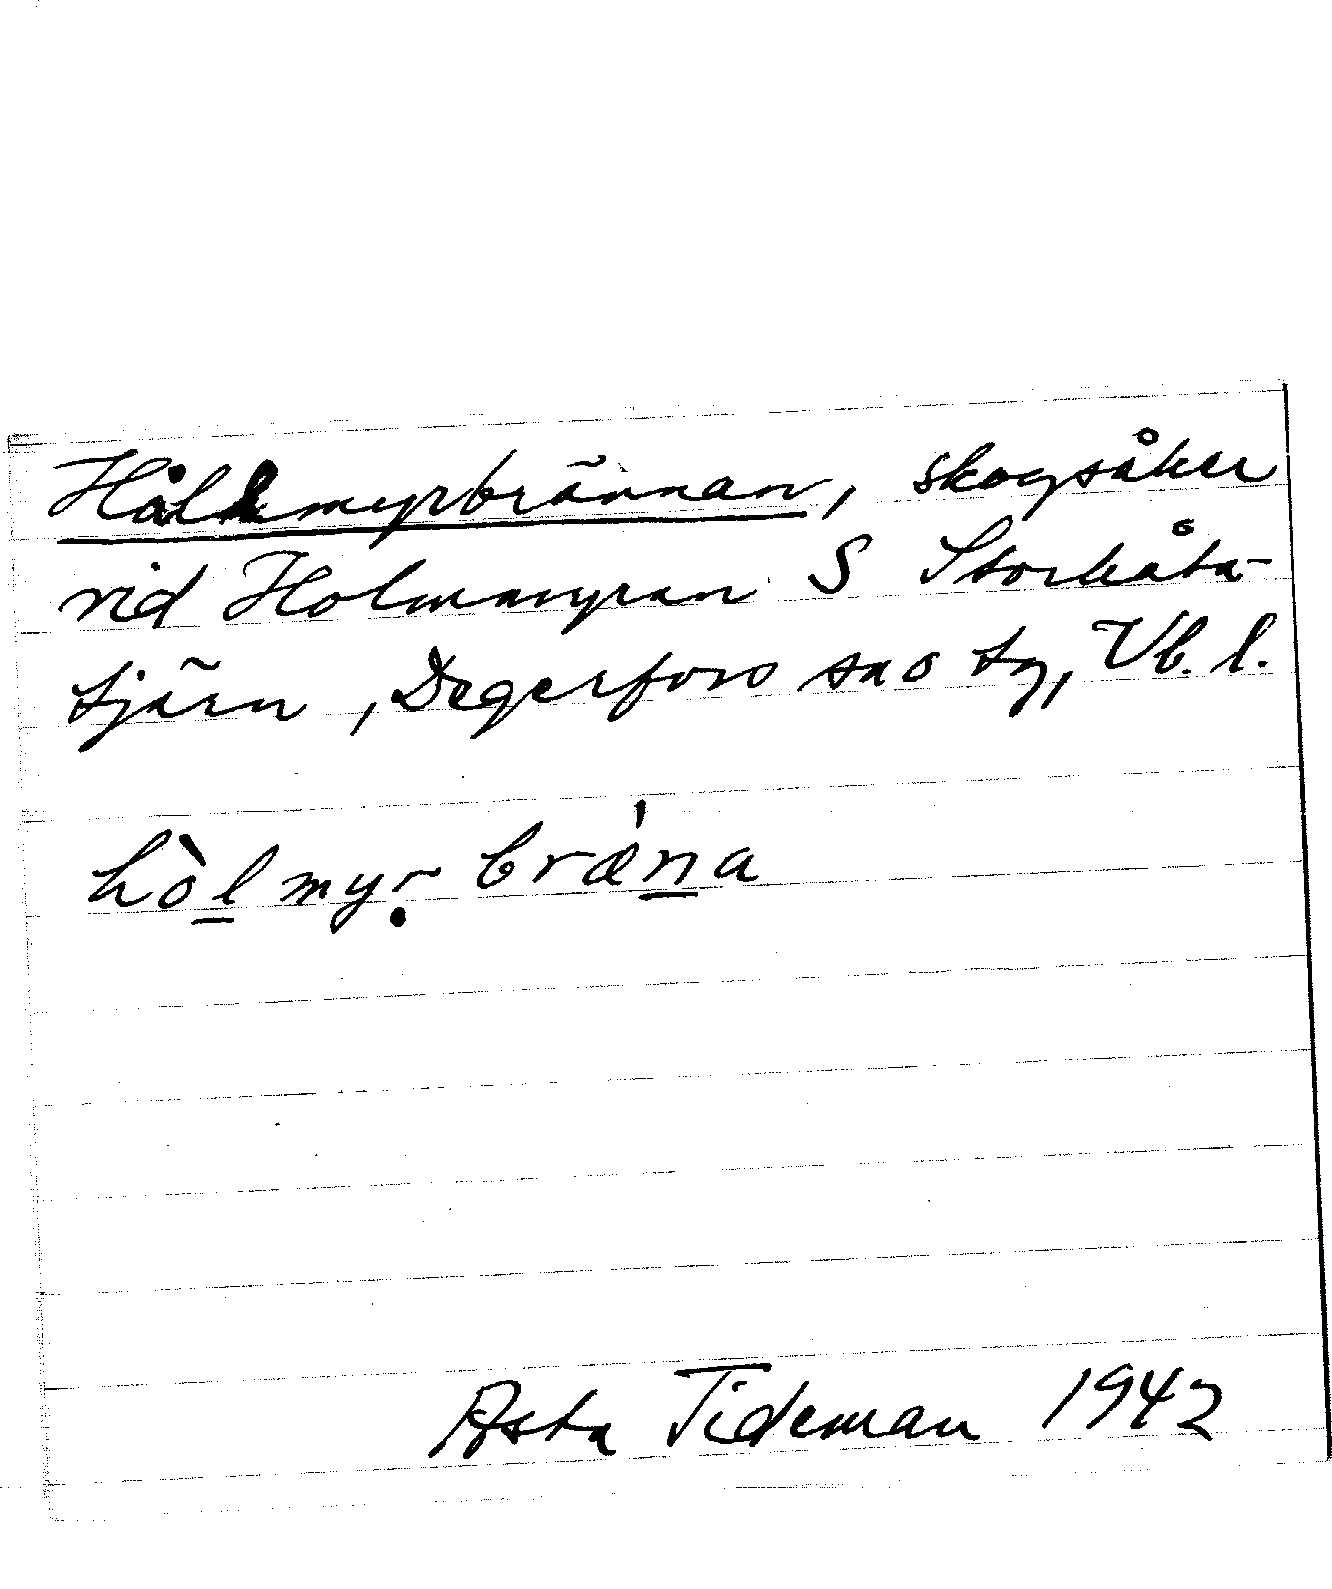 Hållmyrbrännan, skogsåker
vid Holmmyran S Storbåta-
tjärn, Degerfors sn o tg, Vb. l.
hòl̲myṛbræ̍n̲a
Asta Tideman 1942